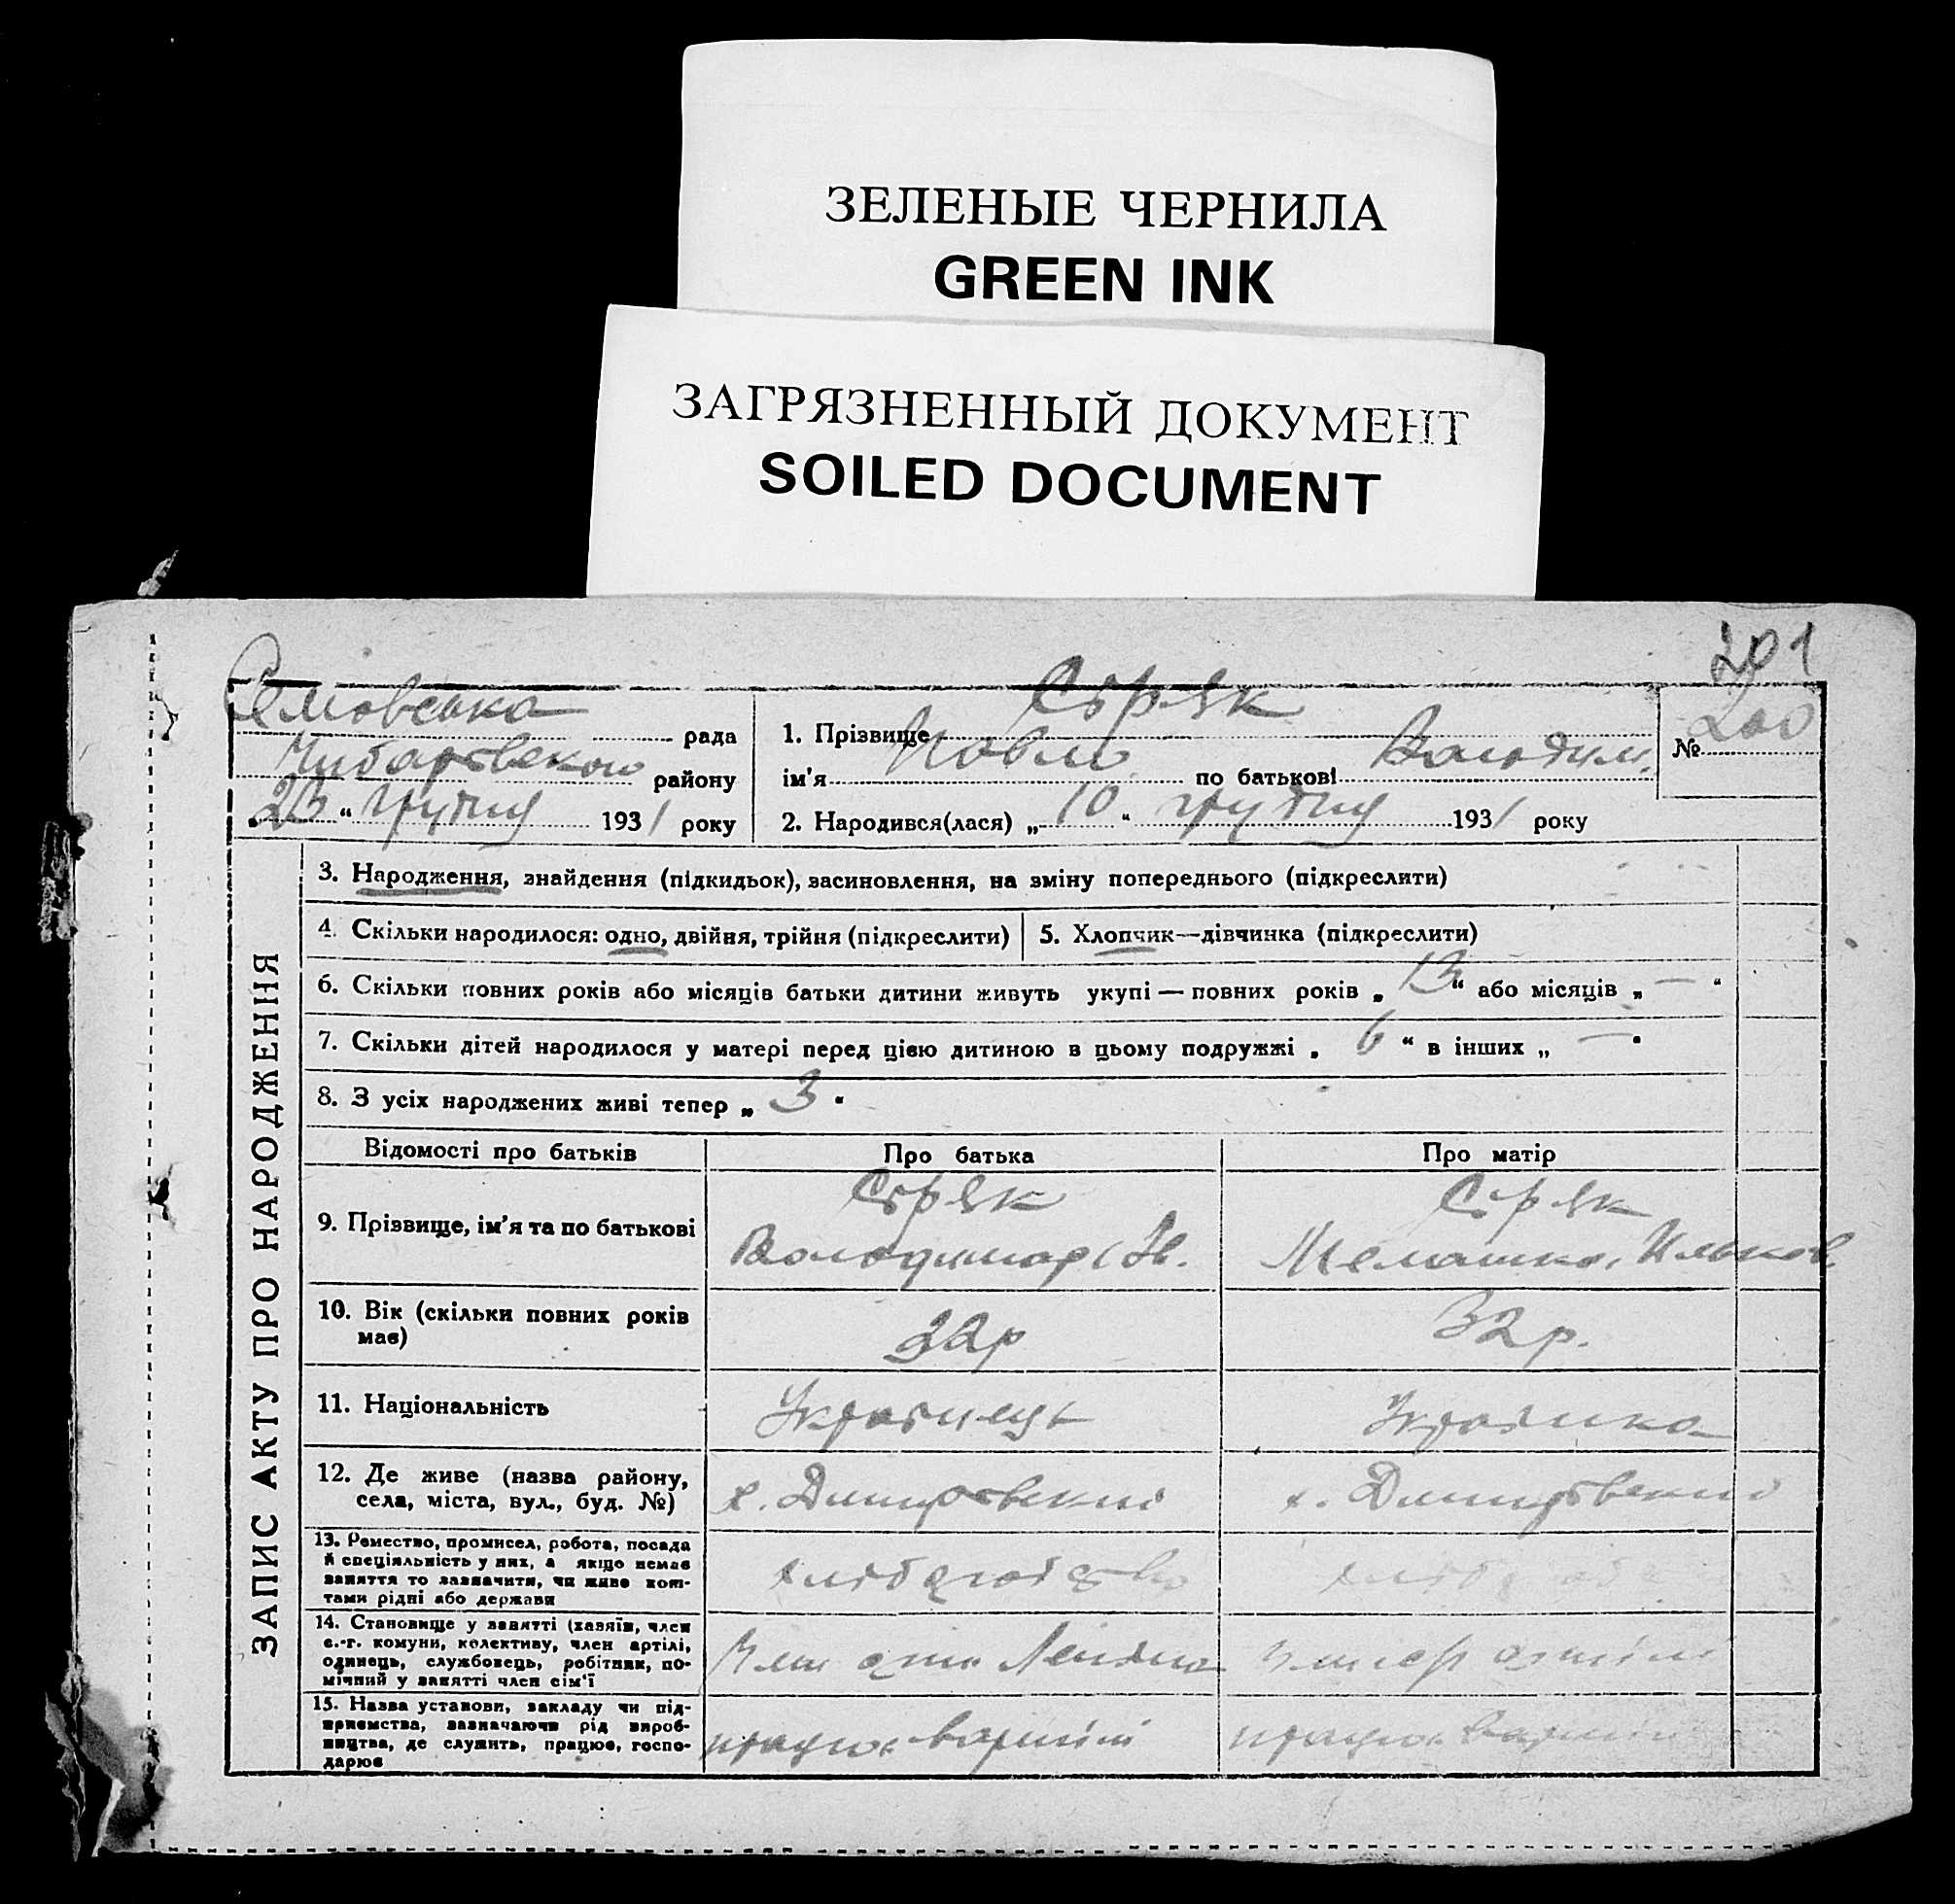 ЗЕЛЕНЫЕ ЧЕРНИЛА
GREEN INK
ЗАГРЯЗНЕННЫЙ ДОКУМЕНТ
SOILED DOCUMENT
201
рада
Чубарівського району
26 “ грудня 1931 року
1. Прізвище Сіряк
ім'я Павло по батькові Володим.
2. Народився(лася) „ 10 “ грудня 1931 року
№ 200
ЗАПИС АКТУ ПРО НАРОДЖЕННЯ
3. Народження, знайдення (підкидьок), засиновлення, на зміну попереднього (підкреслити)
4. Скільки народилося: одно, двійня, трійня (підкреслити)
5. Хлопчик—дівчинка (підкреслити)
6. Скільки повних років або місяців батьки дитини живуть укупі — повних років „ 13 “ або місяців „ — “
7. Скільки дітей народилося у матері перед цією дитиною в цьому подружжі „ 6 “ в інших „ — “
8. З усіх народжених живі тепер „ 3 “
Відомості про батьків
Про батька
Про матір
9. Прізвище, ім'я та по батькові
Сіряк
Володимар Ів.
Сіряк
Мелашка Ильков.
10. Вік (скільки повних років
має)
32р
32р.
11. Національність
Українець
Українка
12. Де живе (назва району,
села, міста, вул., буд. №)
х. Димитровский
х. Димитровский
13. Ремество, промисел, робота, посада
й спеціяльність у них, а якщо немає
заняття то зазначити, чи живе кош-
тами рідні або держави
хліборобство
14. Становище у занятті (хазяїн, член
с.-г. комуни, колективу, член артілі,
одинець, службовець, робітник, по-
мічний у занятті член сім'ї
Член Леніна
артілі
15. Назва установи, закладу чи під-
приємства, зазначаючи рід вироб-
ництва, де служить, працює, госпо-
дарює
працює вартілі
працює вартілі